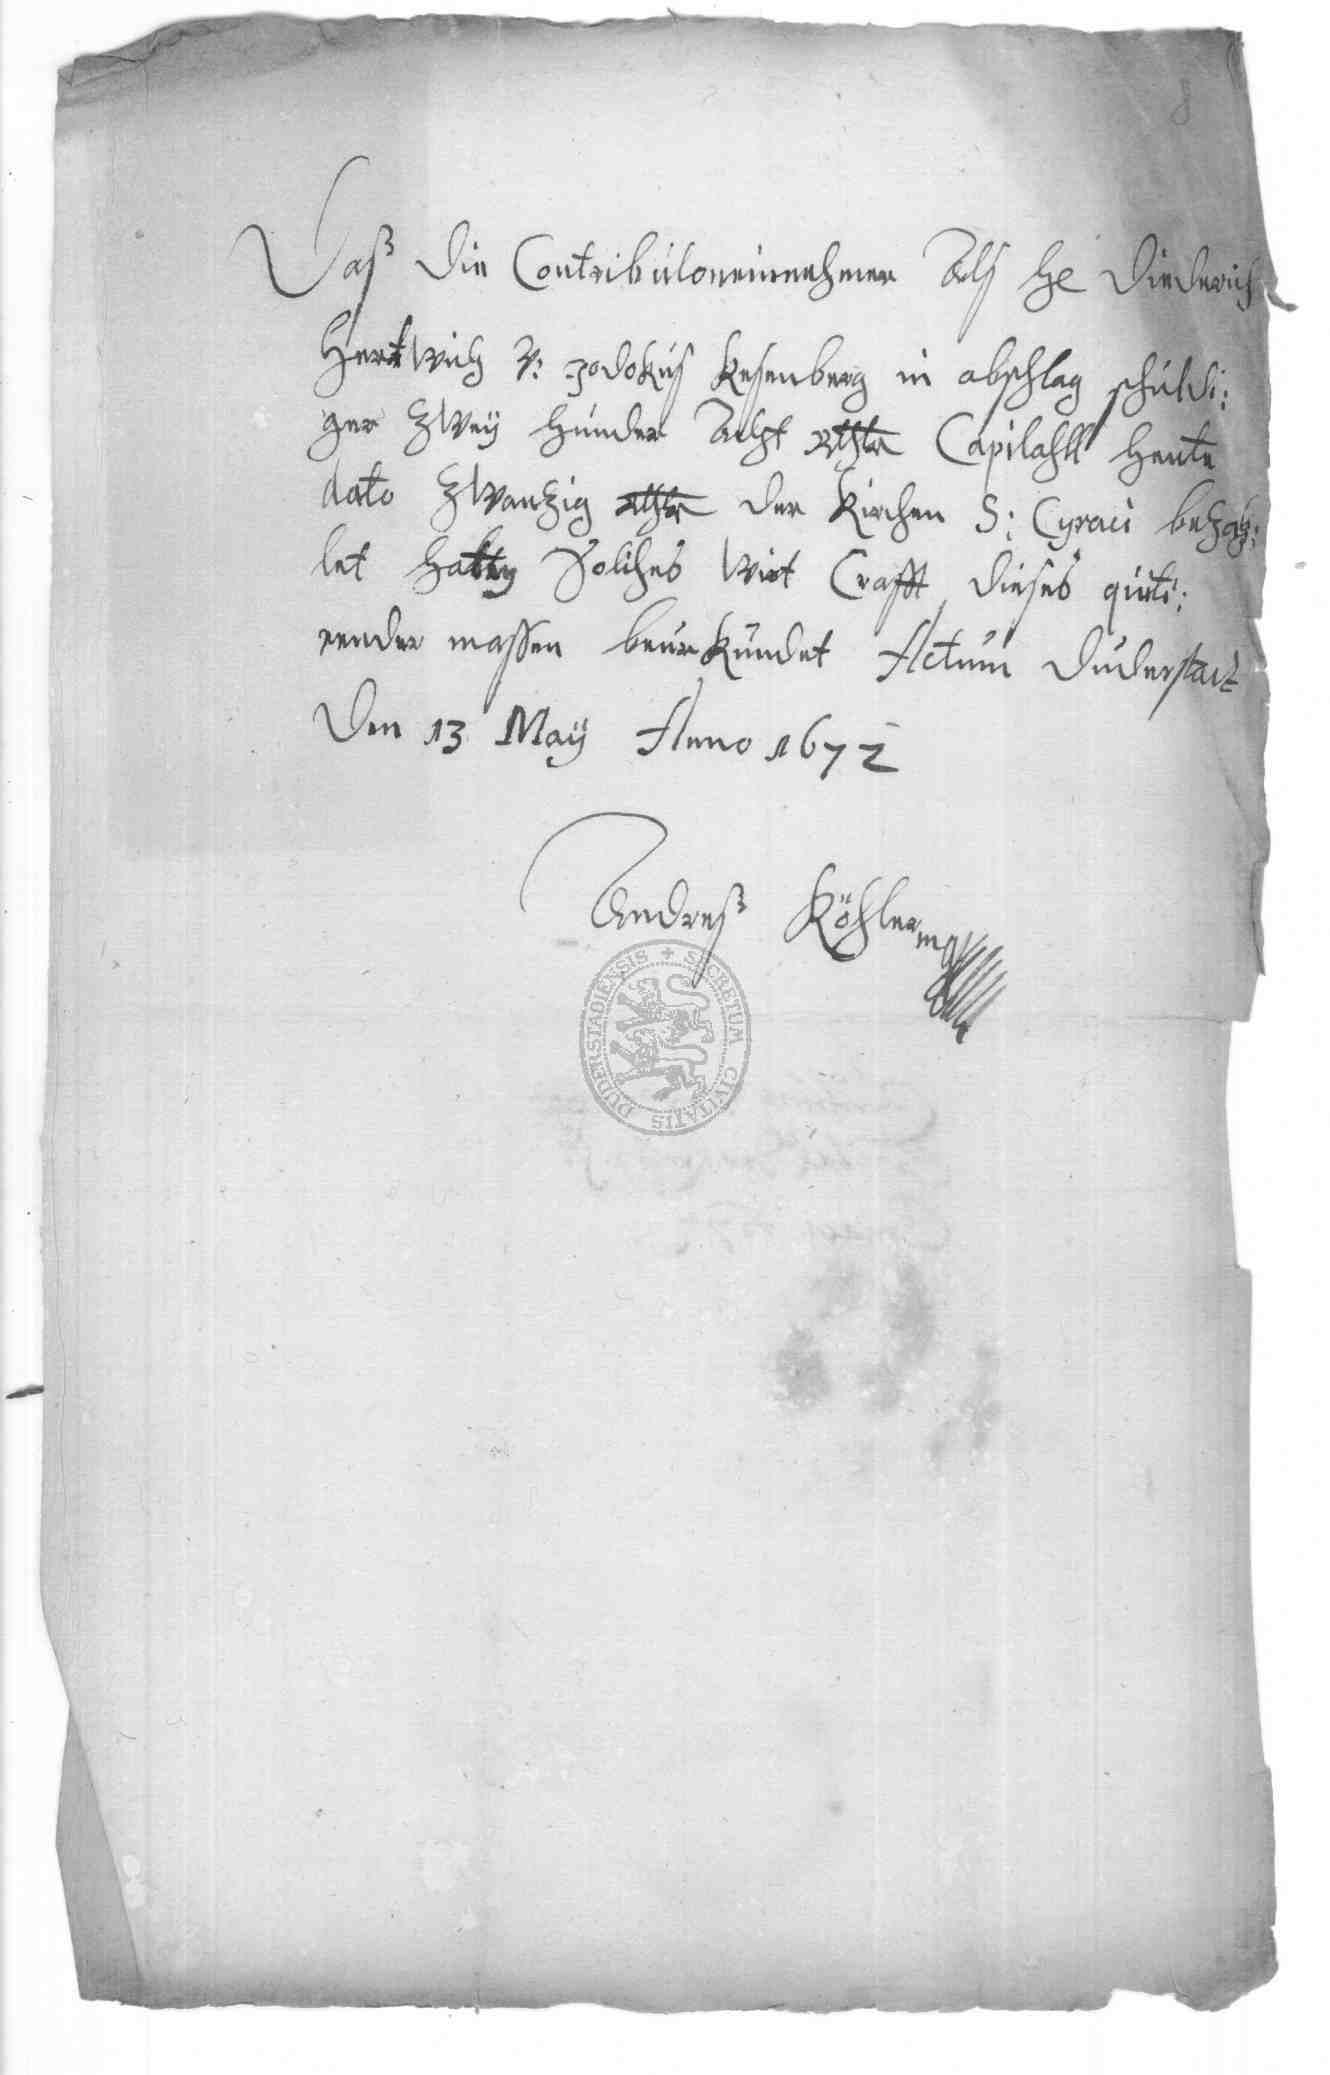 8
Daß die Contribuloneinnehmer Alß He Diederich
Hertwich V: Jodokus Kesenberg in abschlag schuldi:
ger Zweÿ Hunder Acht Rthlr Capitahll Heute
dato Zwanzig Rthlr der Kirchen S: Cyraci bezah:
let haben Solches Wirt Crafft dieses quiti:
render massen beurkundet Actum Duderstatt
Den 13 Maÿ Anno 1672
Andreß Köhler mp
SECRETUM CIVITATIS DUDERSTADIENSIS